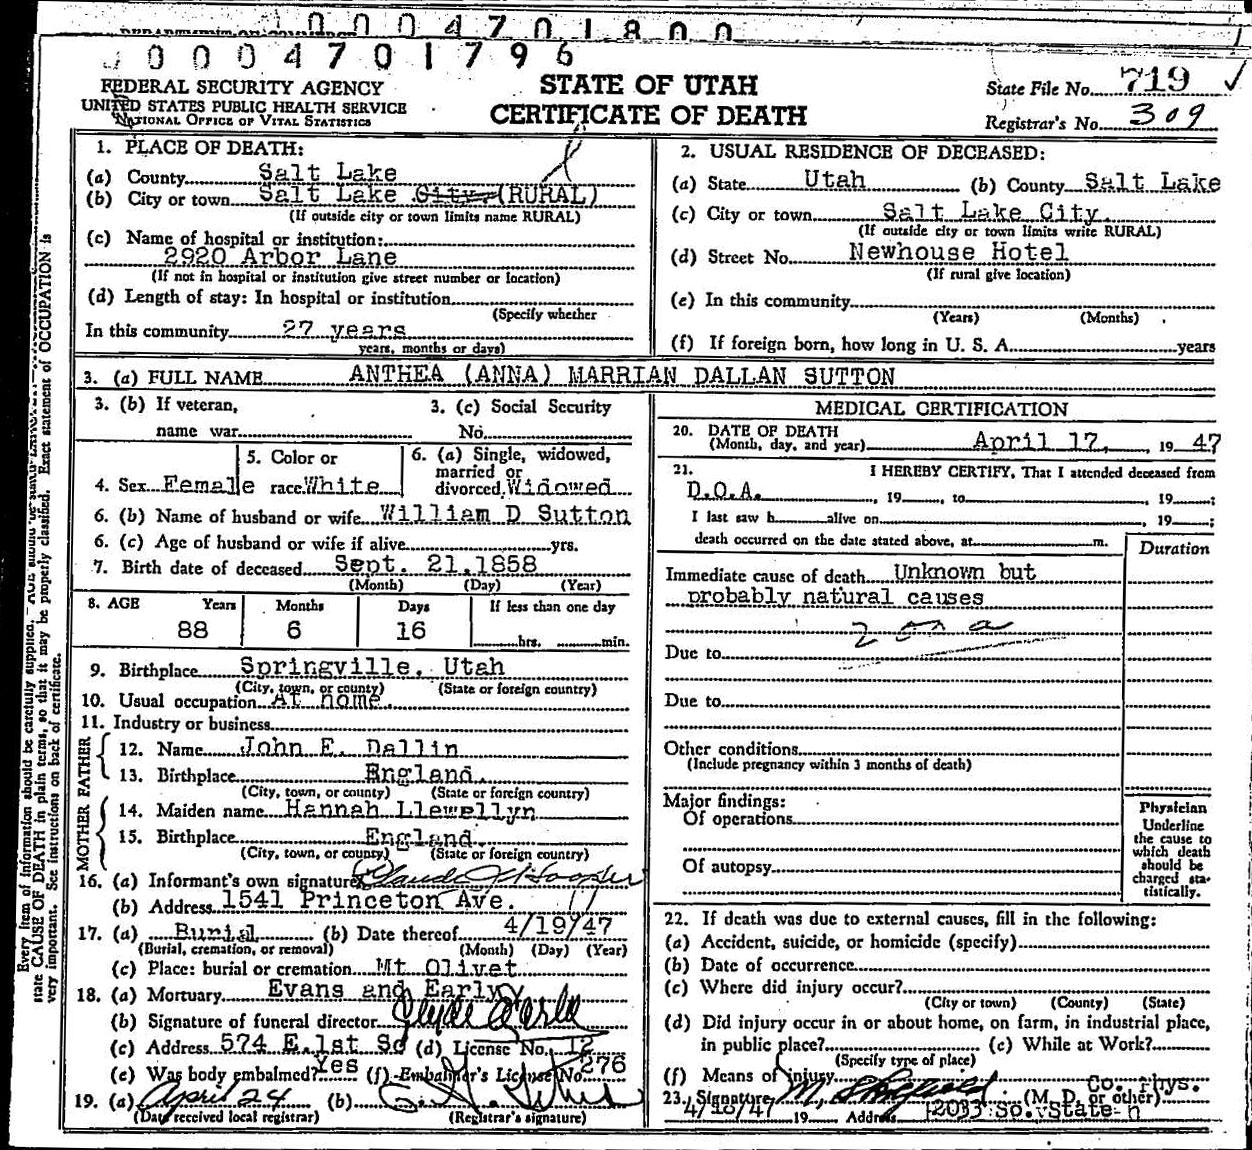 0004701800
0004701796
FEDERAL SECURITY AGENCY
UNITED STATES PUBLIC HEALTH SERVICE
NATIONAL OFFICE OF VITAL STATISTICS
STATE OF UTAH
CERTIFICATE OF DEATH
State File No. 719
Registrar's No. 309
1. PLACE OF DEATH:
(a) County Salt Lake
(b) City or town Salt Lake City (RURAL)
(If outside city or town limits name RURAL)
(c) Name of hospital or institution:
2920 Arbor Lane
(If not in hospital or institution give street number or location)
(d) Length of stay: In hospital or institution
(Specify whether
In this community 27 years
years, months or days)
2. USUAL RESIDENCE OF DECEASED:
(a) State Utah (b) County Salt Lake
(c) City or town Salt Lake City.
(If outside city or town limits write RURAL)
(d) Street No. Newhouse Hotel
(If rural give location)
(e) In this community
(Years) (Months)
(f) If foreign born, how long in U. S. A. years
3. (a) FULL NAME ANTHEA (ANNA) MARRIAN DALLAN SUTTON
3. (b) If veteran, 3. (c) Social Security
name war No.
5. Color or 6. (a) Single, widowed,
married or
4. Sex Female race White divorced Widowed
6. (b) Name of husband or wife William D Sutton
6. (c) Age of husband or wife if alive yrs.
7. Birth date of deceased Sept. 21.1858
(Month) (Day) (Year)
8. AGE Years Months Days If less than one day
88 6 16 hrs. min.
9. Birthplace Springville, Utah
(City, town, or county) (State or foreign country)
10. Usual occupation At home.
11. Industry or business
FATHER
12. Name John E. Dallin
13. Birthplace England.
(City, town, or county) (State or foreign country)
MOTHER
14. Maiden name Hannah Llewellyn
15. Birthplace England.
(City, town, or county) (State or foreign country)
16. (a) Informant's own signature
(b) Address 1541 Princeton Ave.
17. (a) Burial (b) Date thereof 4/19/47
(Burial, cremation, or removal) (Month) (Day) (Year)
(c) Place: burial or cremation Mt Olivet
18. (a) Mortuary Evans and Early
(b) Signature of funeral director
(c) Address 574 E.1st So (d) License No. 12
(e) Was body embalmed? Yes (f) Embalmer's License No. 276
19. (a) April 24 (b)
(Date received local registrar) (Registrar's signature)
MEDICAL CERTIFICATION
20. DATE OF DEATH
(Month, day, and year) April 17, 19 47
21. I HEREBY CERTIFY, That I attended deceased from
D.O.A. , 19 , to , 19 ;
I last saw h alive on , 19 ;
death occurred on the date stated above, at m.
Duration
Immediate cause of death Unknown but
probably natural causes
200 a
Due to
Due to
Other conditions
(Include pregnancy within 3 months of death)
Major findings:
Of operations
Of autopsy
Physician
Underline
the cause to
which death
should be
charged sta-
tistically.
22. If death was due to external causes, fill in the following:
(a) Accident, suicide, or homicide (specify)
(b) Date of occurrence
(c) Where did injury occur?
(City or town) (County) (State)
(d) Did injury occur in or about home, on farm, in industrial place,
in public place? (e) While at Work?
(Specify type of place)
(f) Means of injury
Co. Phys.
23. Signature (M. D. or other)
19 Address 2033 So. State
Every item of information should be carefully supplied. AGE should be stated
state CAUSE OF DEATH in plain terms, so that it may be properly classified. Exact statement of OCCUPATION is
very important. See instructions on back of certificate.